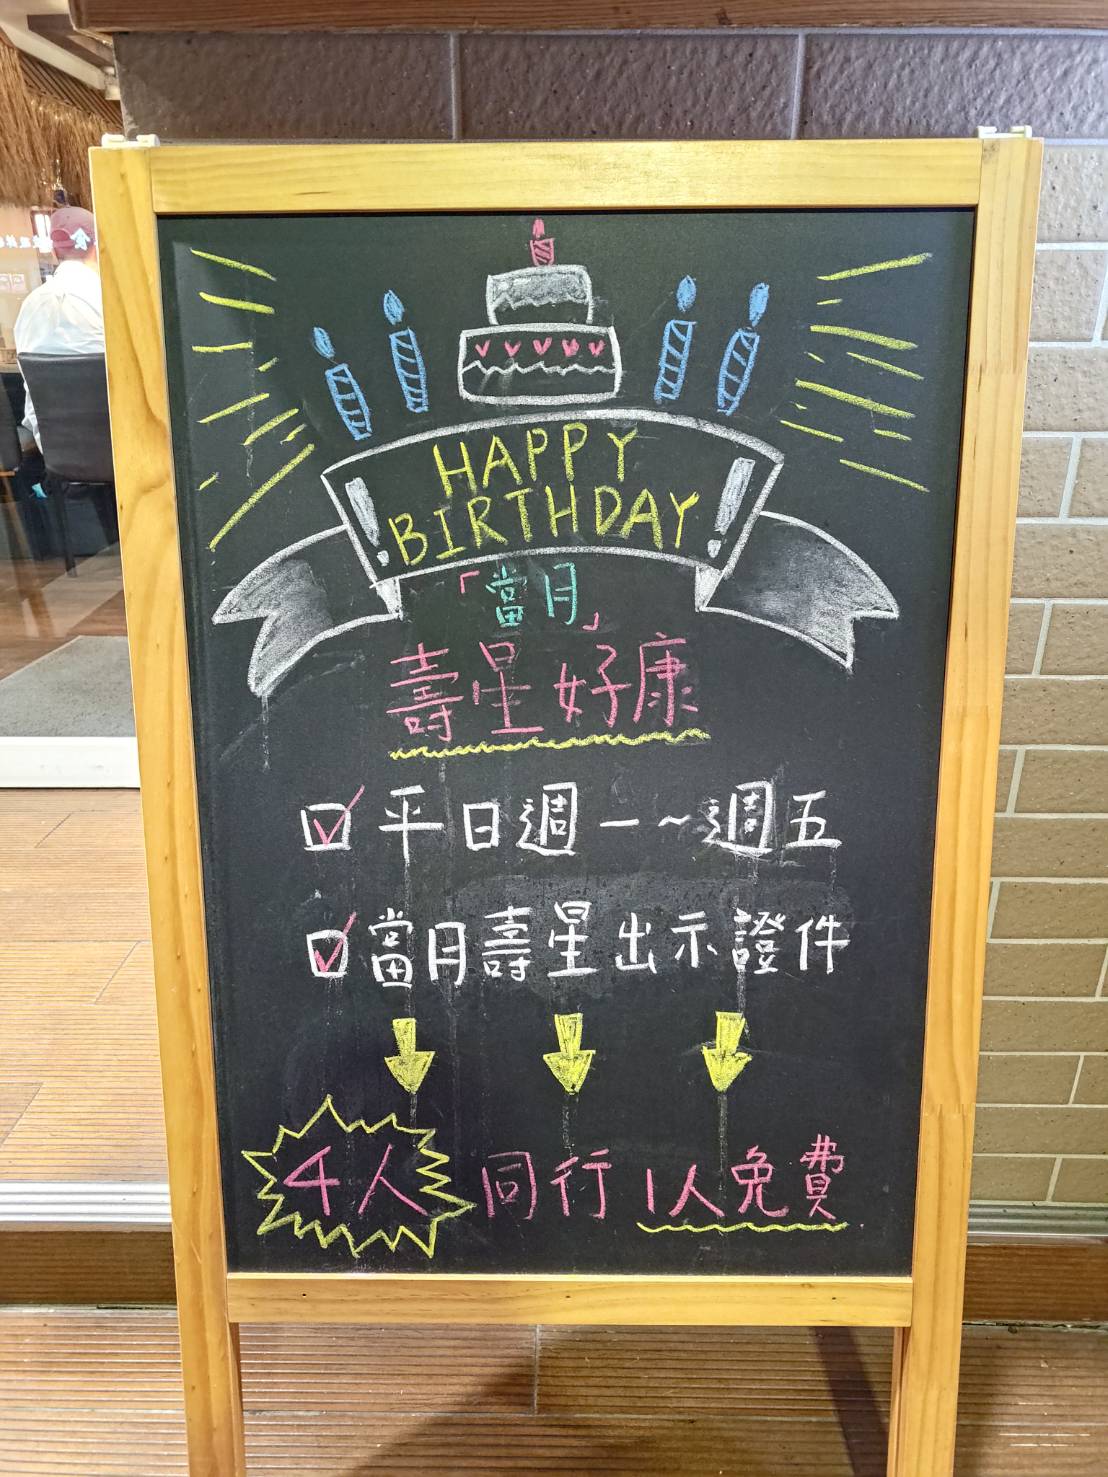 HAPPY
BIRTHDAY
「當月」
壽星好康
☑平日週一~週五
☑當月壽星出示證件
4人同行1人免費